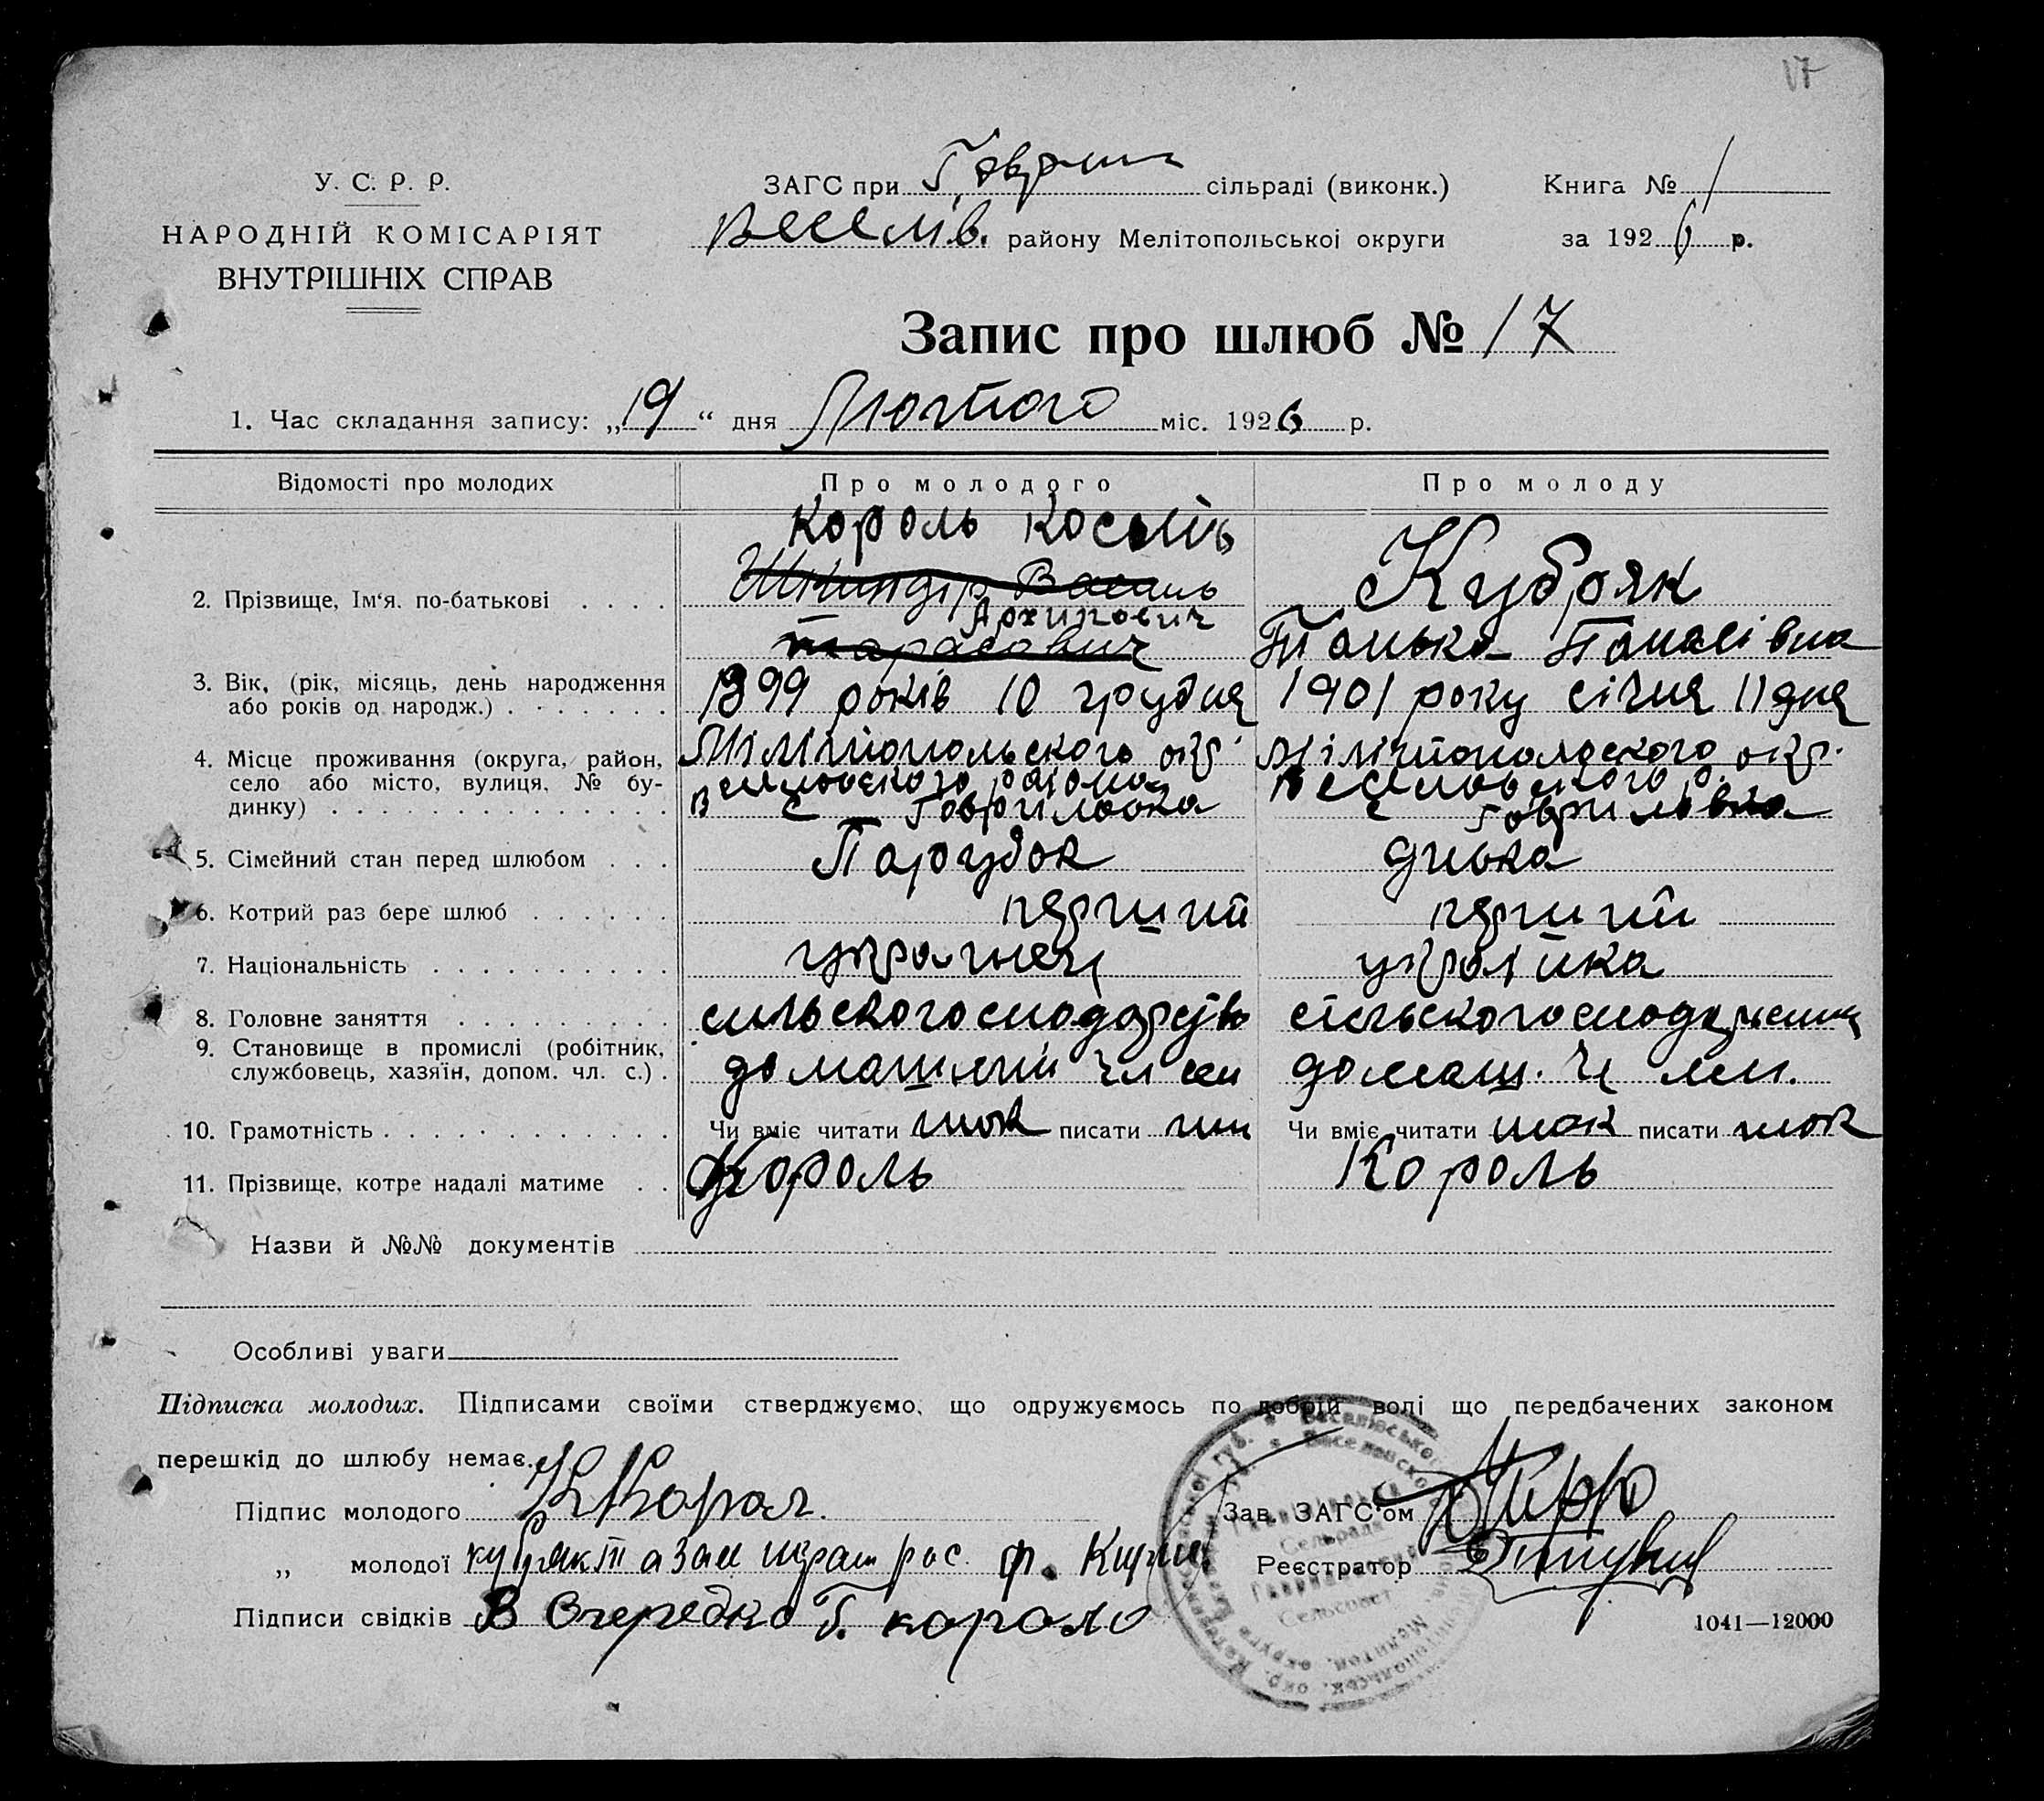 17
У. С. Р. Р.
НАРОДНІЙ КОМІСАРІЯТ
ВНУТРІШНІХ СПРАВ
ЗАГС при Гаврил сільраді (виконк.)
Веселів. району Мелітопольської округи
Книга № 1
за 1926 р.
Запис про шлюб № 17
1. Час складання запису: „19“ дня Лютого міс. 1926 р.
Відомості про молодих
Про молодого
Про молоду
2. Прізвище, Ім'я. по-батькові . . . .
Король Косміь
Василь
Архипович
Тарасович
Кубряк
Танька Панасівна
3. Вік, (рік, місяць, день народження
або років од народж.) . . . . . . .
1899 років 10 грудня
1901 року січня 11 дня
4. Місце проживання (округа, район,
село або місто, вулиця, № бу-
динку) . . . . . . . . . . . . . . .
Мілітопольского окр.
Веселовского района
с Гавриловка
Мілітопольского окр.
Веселовского р.
с Гавриловка
5. Сімейний стан перед шлюбом . . .
Парубок
дивка
6. Котрий раз бере шлюб . . . . . .
перший
перший
7. Національність . . . . . . . . . .
украинец
украінка
8. Головне заняття . . . . . . . . .
9. Становище в промислі (робітник,
службовець, хазяїн, допом. чл. с.) .
домашний чл
домаш. ч
10. Грамотність . . . . . . . . . . . .
Чи вміє читати так писати
Чи вміє читати так писати так
11. Прізвище, котре надалі матиме . .
Король
Король
Назви й №№ документів
Особливі уваги
Підписка молодих. Підписами своїми стверджуємо, що одружуємось по добрій волі що передбачених законом
перешкід до шлюбу немає.
Підпис молодого К Корол
„ молодої кубряк т а за ии играм рас. ф.
Підписи свідків В Очередко Т. король
Зав. ЗАГС'ом
Реєстратор
1041—12000